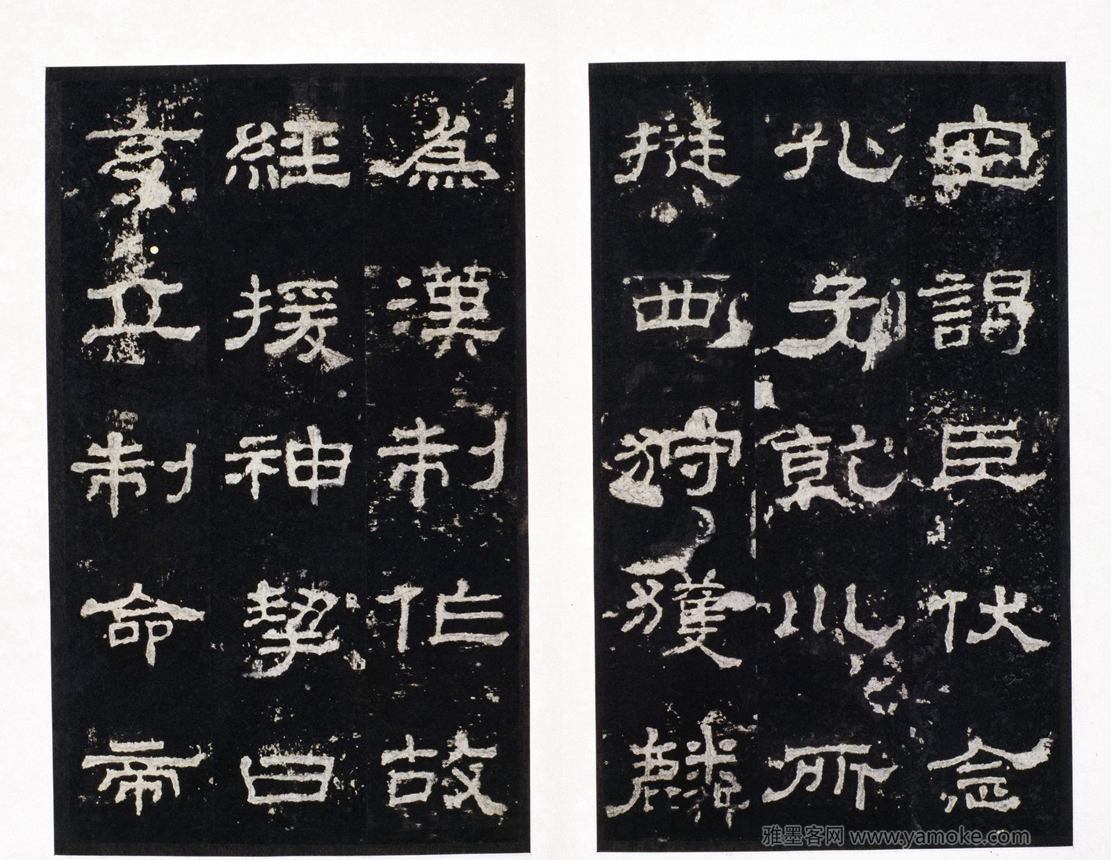 空謁臣伏念
孔子乾川所
挺西狩獲麟
為漢制作故
經援神挈曰
玄丘制命帝
雅墨客网 www.yamoke.com